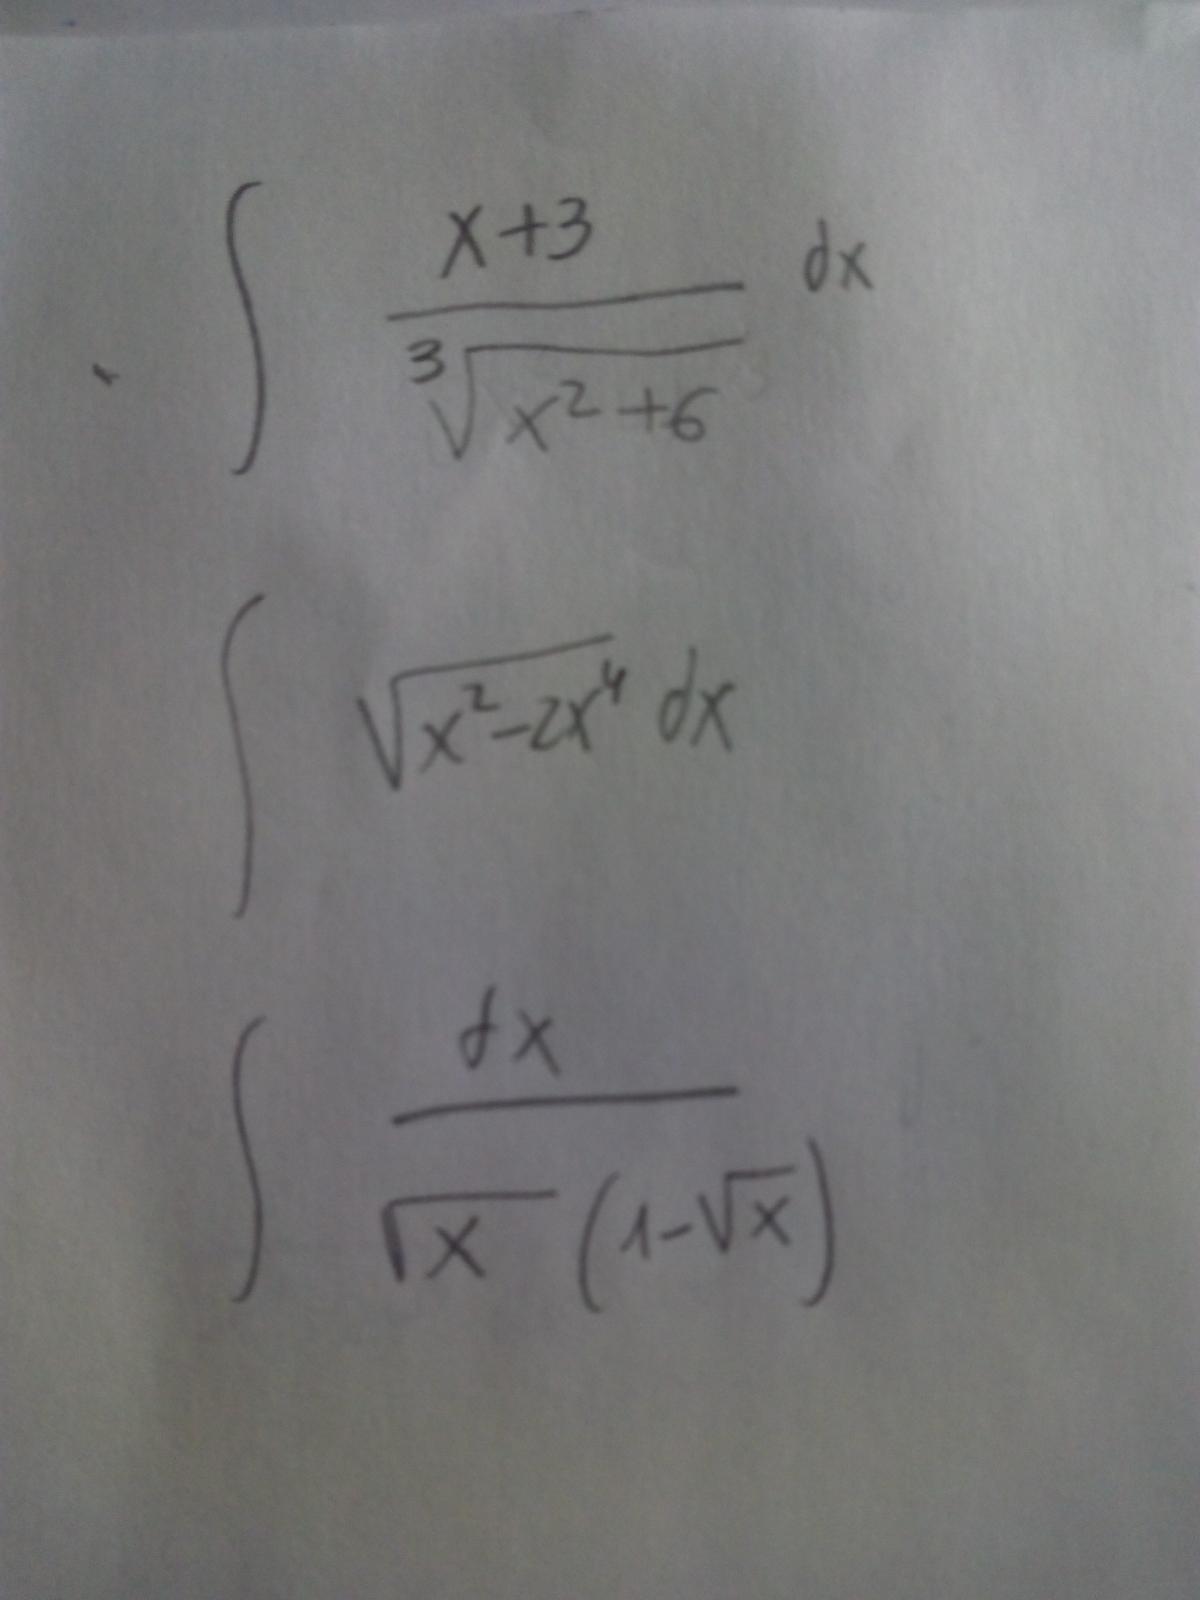 ∫ (x+3)/∛(x²+6) dx
∫ √(x²-2x⁴) dx
∫ dx/(√x (1-√x))